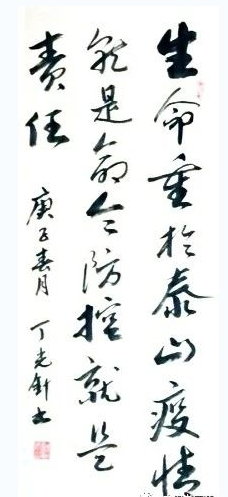 生命重於泰山疫情
就是命令防控就是
责任
庚子春月 丁光针书